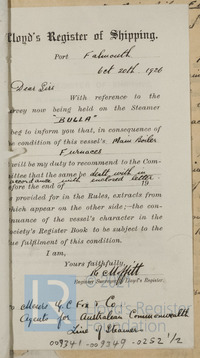 Lloyd's Register of Shipping.
Port Falmouth
Oct 20th 1926
Dear Sirs
With reference to the
rvey now being held on the Steamer
"BULLA"
beg to inform you that, in consequence of
he condition of this vessel's Main Boiler
Furnaces
will be my duty to recommend to the Com-
ittee that the same be dealt with in
accordance with enclosed letter
before the end of 19
s provided for in the Rules, extracts from
which appear on the other side;—the con-
inuance of the vessel's character in the
ociety's Register Book to be subject to the
ue fulfilment of this condition.
I am,
Yours faithfully,
Moffitt
Surveyor to Lloyd's Register.
To Messrs G C Fox & Co
Agents for Australian Commonwealth
Line of Steamers
009341-009349-0252 1/2